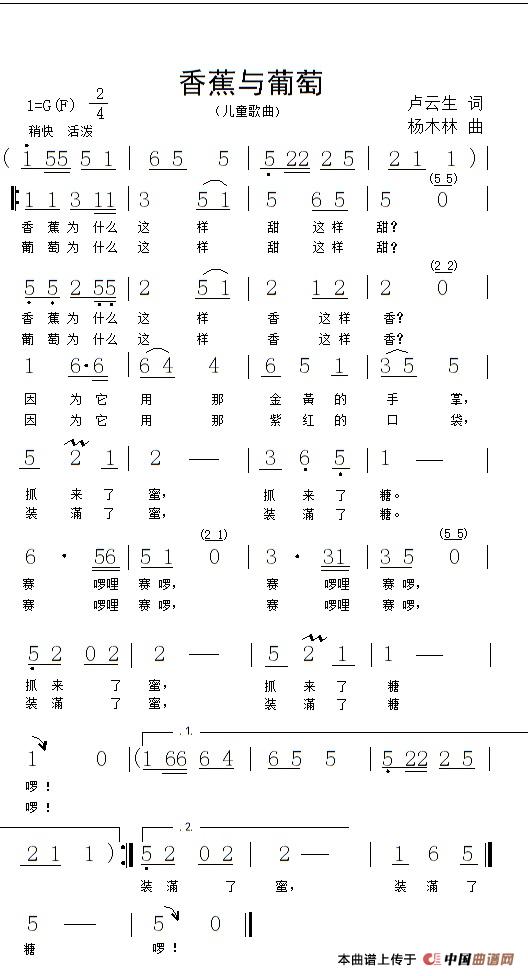 香蕉与葡萄
(儿童歌曲)
1=G(F) 2/4
稍快 活泼
卢云生 词
杨木林 曲
( i 55 5 1 | 6 5 5 | 5 22 2 5 | 2 1 1 ) |
(5 5)
1 1 3 11 | 3 5 1 | 5 6 5 | 5 0 |
香 蕉 为 什么 这 样 甜 这样 甜?
葡 萄 为 什么 这 样 甜 这样 甜?
(2 2)
5 5 2 55 | 2 5 1 | 2 1 2 | 2 0 |
香 蕉 为 什么 这 样 香 这 样 香?
葡 萄 为 什么 这 样 香 这 样 香?
1 6·6 | 6 4 4 | 6 5 1 | 3 5 5 |
因 为它 用 那 金 黃 的 手 掌,
因 为它 用 那 紫 红 的 口 袋,
5 2 1 | 2 — | 3 6 5 | 1 — |
抓 来 了 蜜, 抓 来 了 糖。
装 滿 了 蜜, 装 滿 了 糖。
(2 1) (5 5)
6 · 56 | 5 1 0 | 3 · 31 | 3 5 0 |
赛 啰哩 赛 啰, 赛 啰哩 赛 啰,
赛 啰哩 赛 啰, 赛 啰哩 赛 啰,
5 2 0 2 | 2 — | 5 2 1 | 1 — |
抓 来 了 蜜, 抓 来 了 糖
装 滿 了 蜜, 装 滿 了 糖
.1.
1 0 | (1 66 6 4 | 6 5 5 | 5 22 2 5 |
啰!
啰!
.2.
2 1 1 ) :| 5 2 0 2 | 2 — | 1 6 5 ‖
装 滿 了 蜜, 装 滿 了
5 — | 5 0 ‖
糖 啰!
本曲谱上传于 中国曲谱网